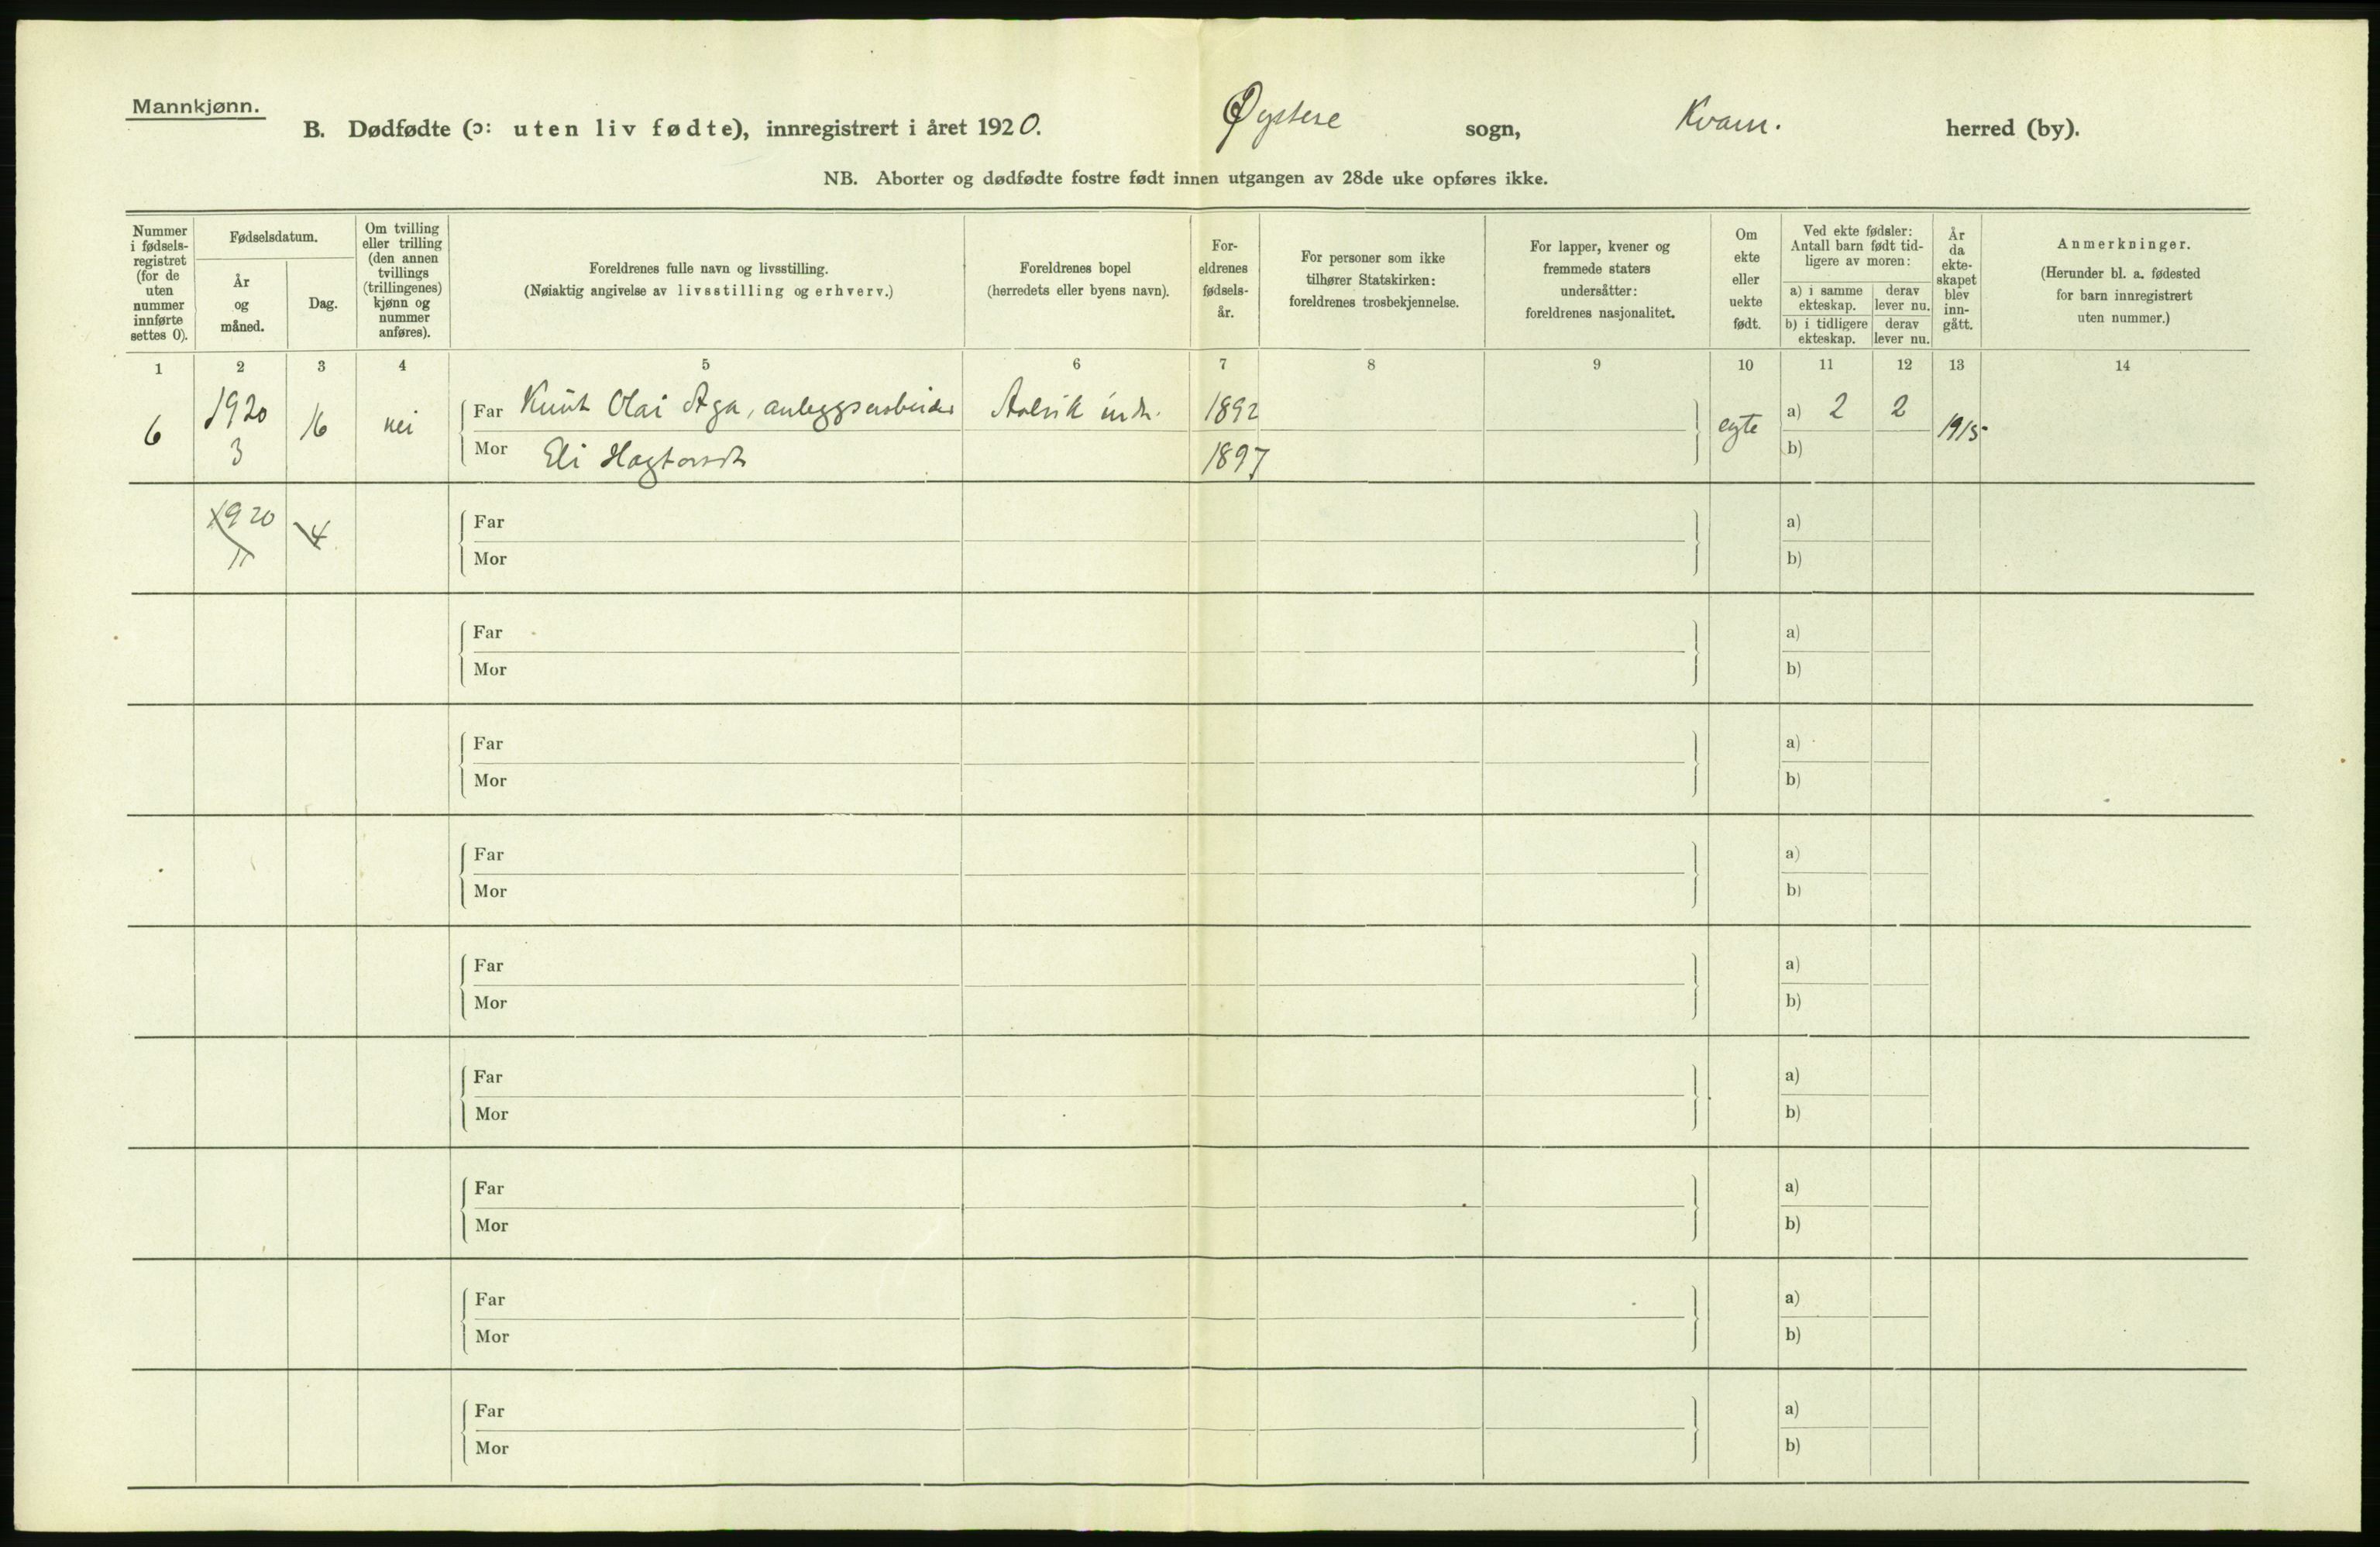 Mannkjønn.
B. Dødfødte (ɔ: uten liv fødte), innregistrert i året 1920. Øystese sogn, Kvam. herred (by).
NB. Aborter og dødfødte fostre født innen utgangen av 28de uke opføres ikke.
Nummer
i fødsels-
registret
(for de
uten
nummer
innførte
settes 0).
Fødselsdatum.
År
og
måned.
Dag.
Om tvilling
eller trilling
(den annen
tvillings
(trillingenes)
kjønn og
nummer
anføres).
Foreldrenes fulle navn og livsstilling.
(Nøiaktig angivelse av livsstilling og erhverv.)
Foreldrenes bopel
(herredets eller byens navn).
For-
eldrenes
fødsels-
år.
For personer som ikke
tilhører Statskirken:
foreldrenes trosbekjennelse.
For lapper, kvener og
fremmede staters
undersåtter:
foreldrenes nasjonalitet.
Om
ekte
eller
uekte
født.
Ved ekte fødsler:
Antall barn født tid-
ligere av moren:
a) i samme
ekteskap.
derav
lever nu.
b) i tidligere
ekteskap.
derav
lever nu.
År
da
ekte-
skapet
blev
inn-
gått.
Anmerkninger.
(Herunder bl. a. fødested
for barn innregistrert
uten nummer.)
1 2 3 4 5 6 7 8 9 10 11 12 13 14
6 1920 3 16 nei Far Knut Olai Aga, anleggsarbeider Aalvik indr. 1892 egte a) 2 2 1915
Mor Eli 1897 b)
1920 4 Far a)
Mor b)
Far a)
Mor b)
Far a)
Mor b)
Far a)
Mor b)
Far a)
Mor b)
Far a)
Mor b)
Far a)
Mor b)
Far a)
Mor b)
Far a)
Mor b)